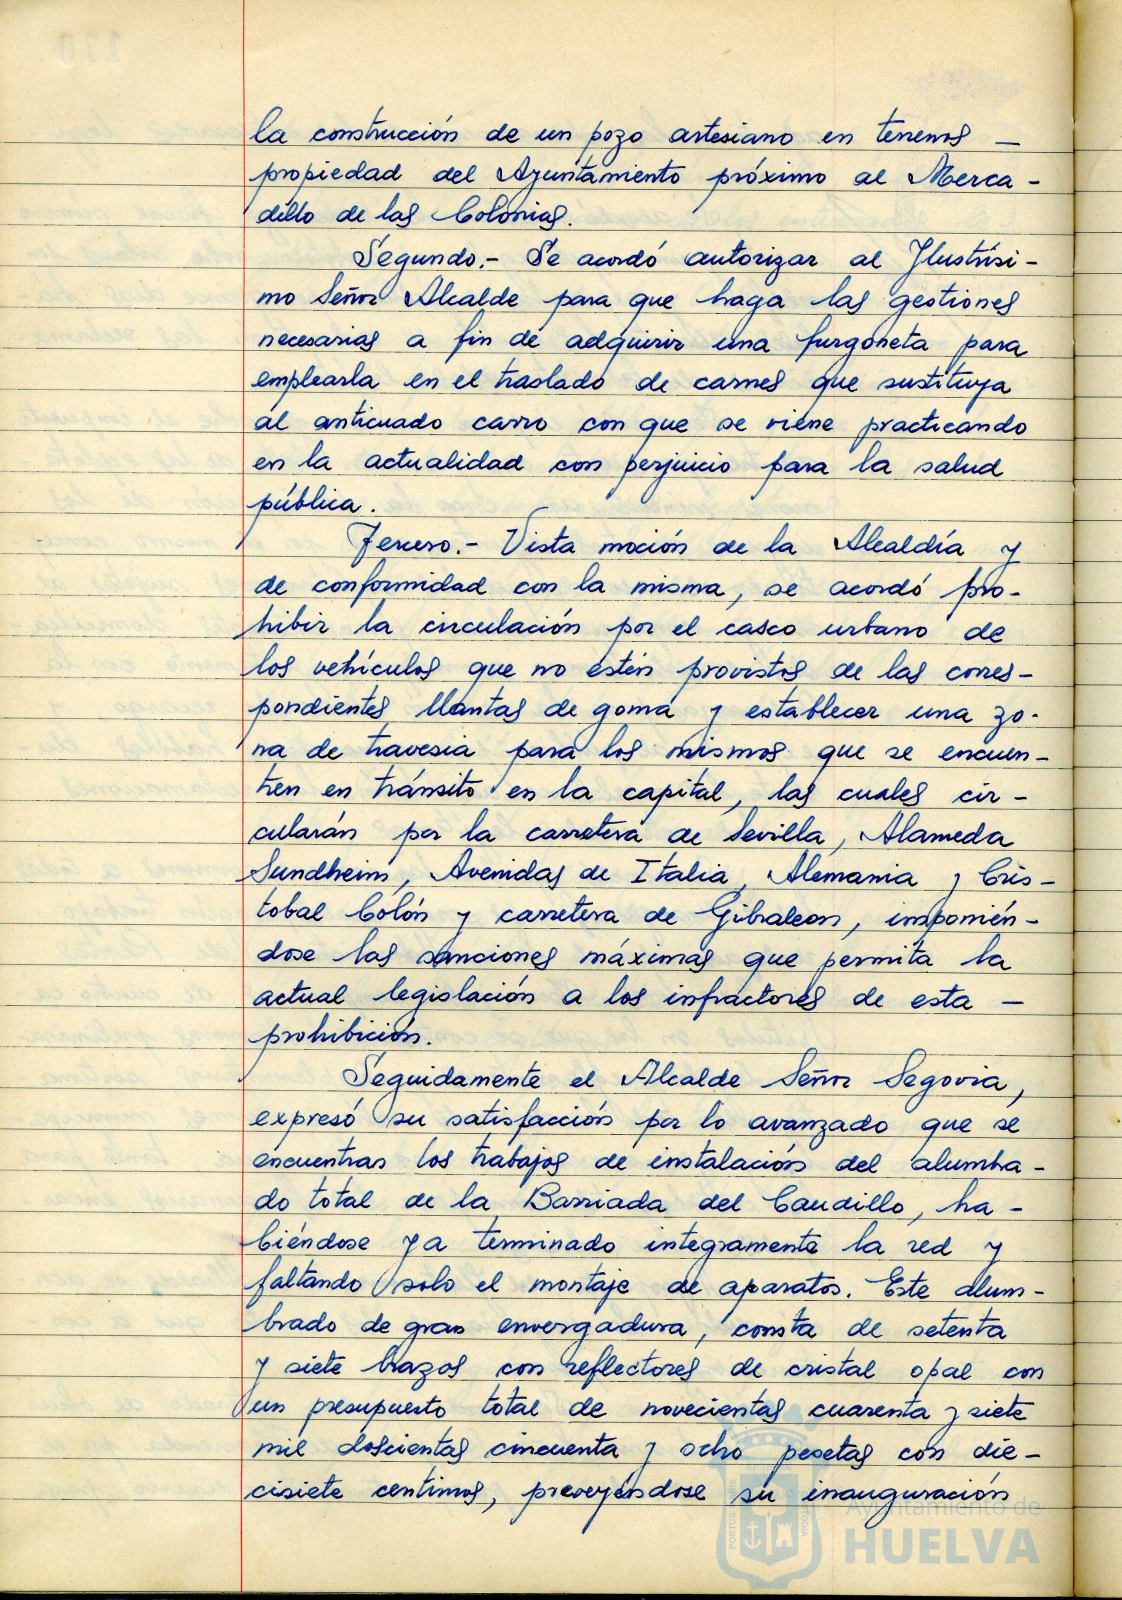 la construcción de un pozo artesiano en terrenos —
propiedad del Ayuntamiento próximo al Merca -
dillo de las Colonias.
Segundo.- Se acordó autorizar al Ilustrísi -
mo Señor Alcalde para que haga las gestiones
necesarias a fin de adquirir una furgoneta para
emplearla en el traslado de carnes que sustituya
al anticuado carro con que se viene practicando
en la actualidad con perjuicio para la salud
pública.
Tercero.- Vista moción de la Alcaldía y
de conformidad con la misma, se acordó pro-
hibir la circulación por el casco urbano de
los vehículos que no estén provistos de las corres-
pondientes llantas de goma y establecer una zo-
na de travesia para los mismos que se encuen-
tren en tránsito en la capital, las cuales cir -
cularán por la carretera de Sevilla, Alameda
Sundheim, Avenidas de Italia, Alemania y Cris-
tobal Colón y carretera de Gibraleon, imponién-
dose las sanciones máximas que permita la
actual legislación a los infractores de esta —
prohibición.
Seguidamente el Alcalde Señor Segovia,
expresó su satisfacción por lo avanzado que se
encuentran los trabajos de instalación del alumbra -
do total de la Barriada del Caudillo, ha -
biéndose ya terminado integramente la red y
faltando solo el montaje de aparatos. Este alum-
brado de gran envergadura, consta de setenta
y siete brazos con reflectores de cristal opal con
un presupuesto total de novecientas cuarenta y siete
mil doscientas cincuenta y ocho pesetas con die -
cisiete centimos, preveyéndose su inauguración
Ayuntamiento de
HUELVA